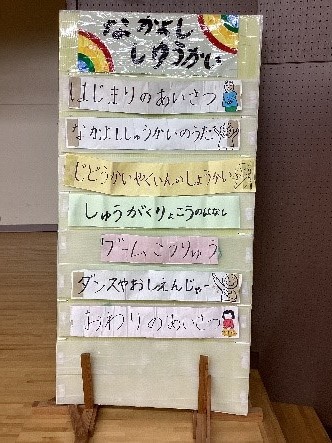 なかよし
しゅうかい
はじまりのあいさつ
なかよししゅうかいのうた
じどうかいやくいんのしょうかい
しゅうがくりょこうのはなし
ダンスやおしえんじゃー
おわりのあいさつ